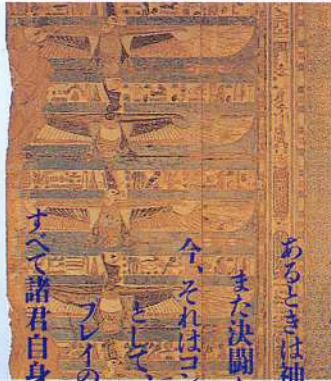 あるときは神
また決闘
今、それはコン
として、
プレイの
すべて諸君自身